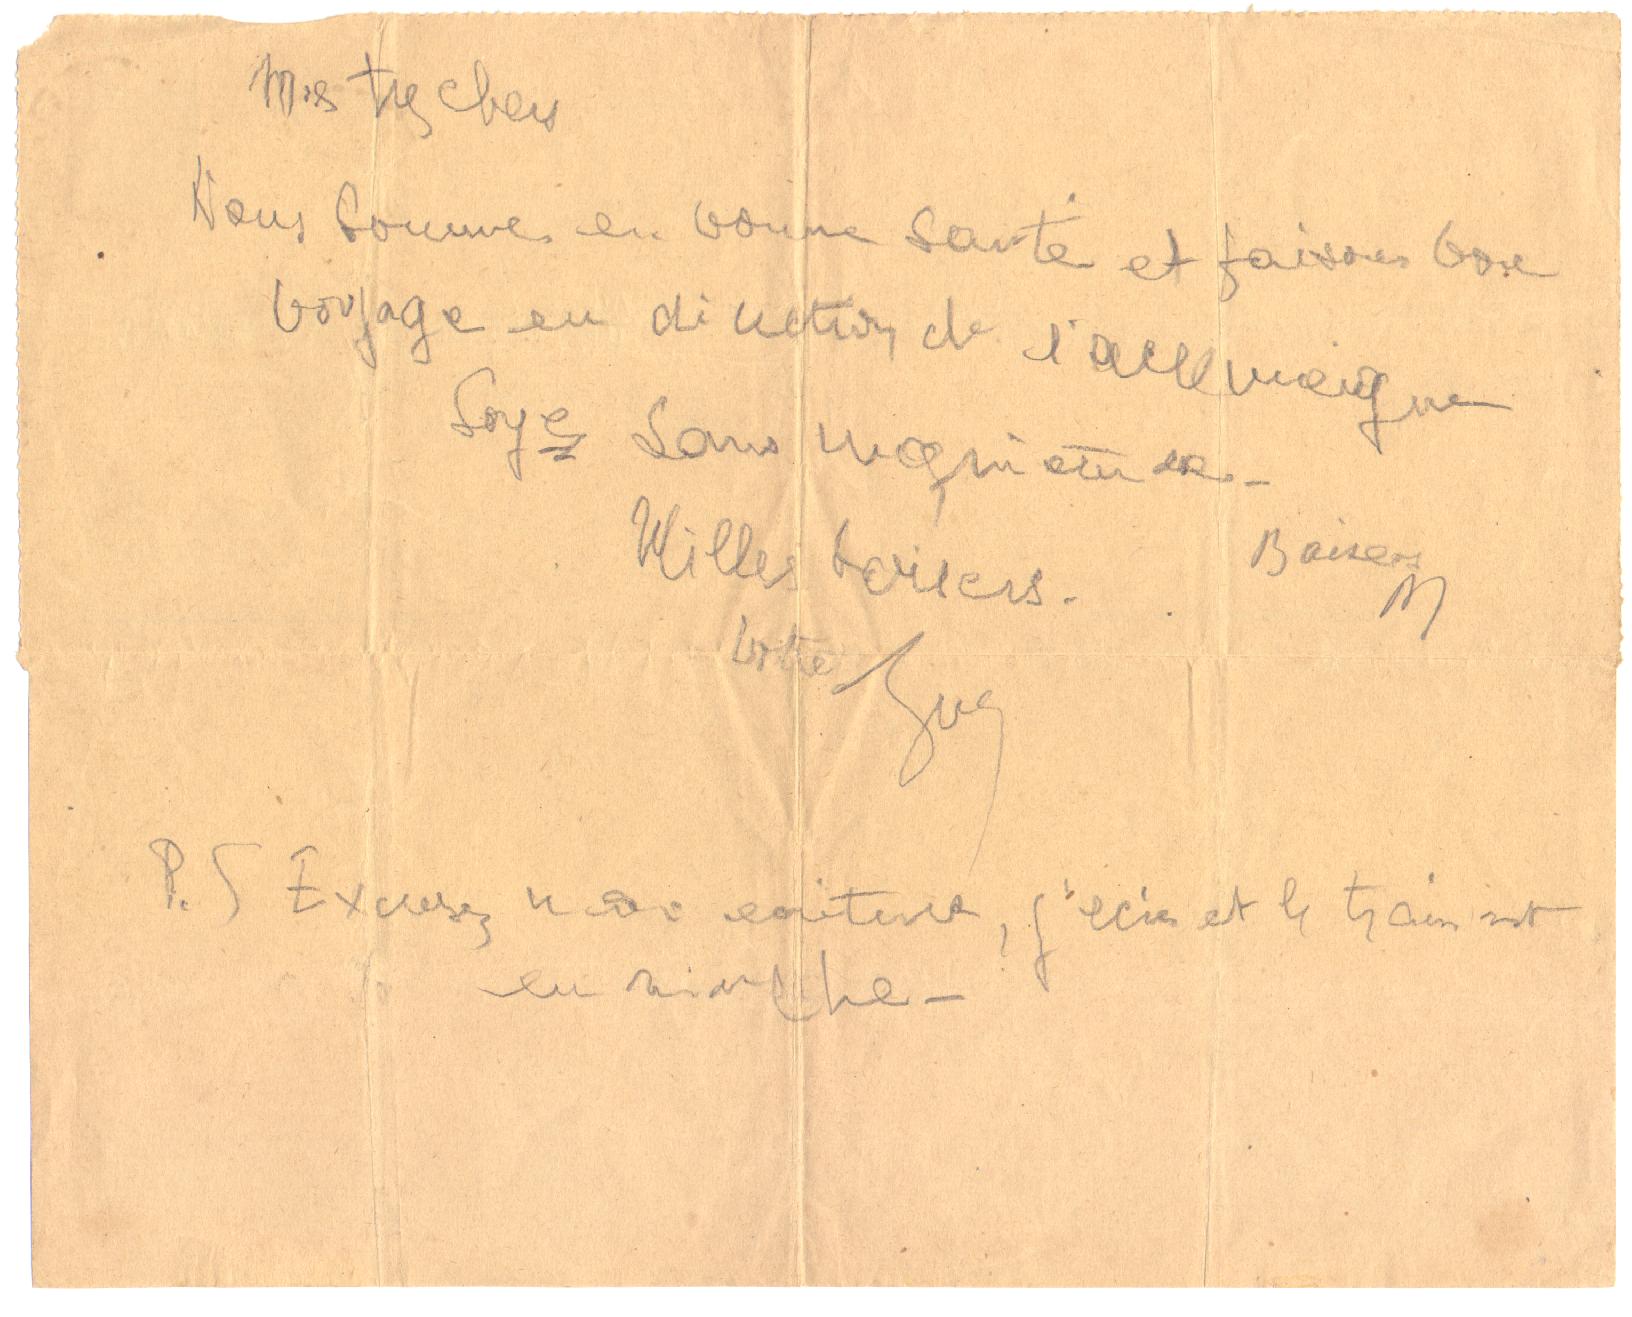 Mes tres chers
Nous sommes en bonne santé et faisons bon
voyage en direction de l'allemaigne
Soyez sans inquietude.-
Milles baisers. Baisers
M
Votre Guy
P.S Excusez mon ecriture, j'ecris et le train est
en marche -